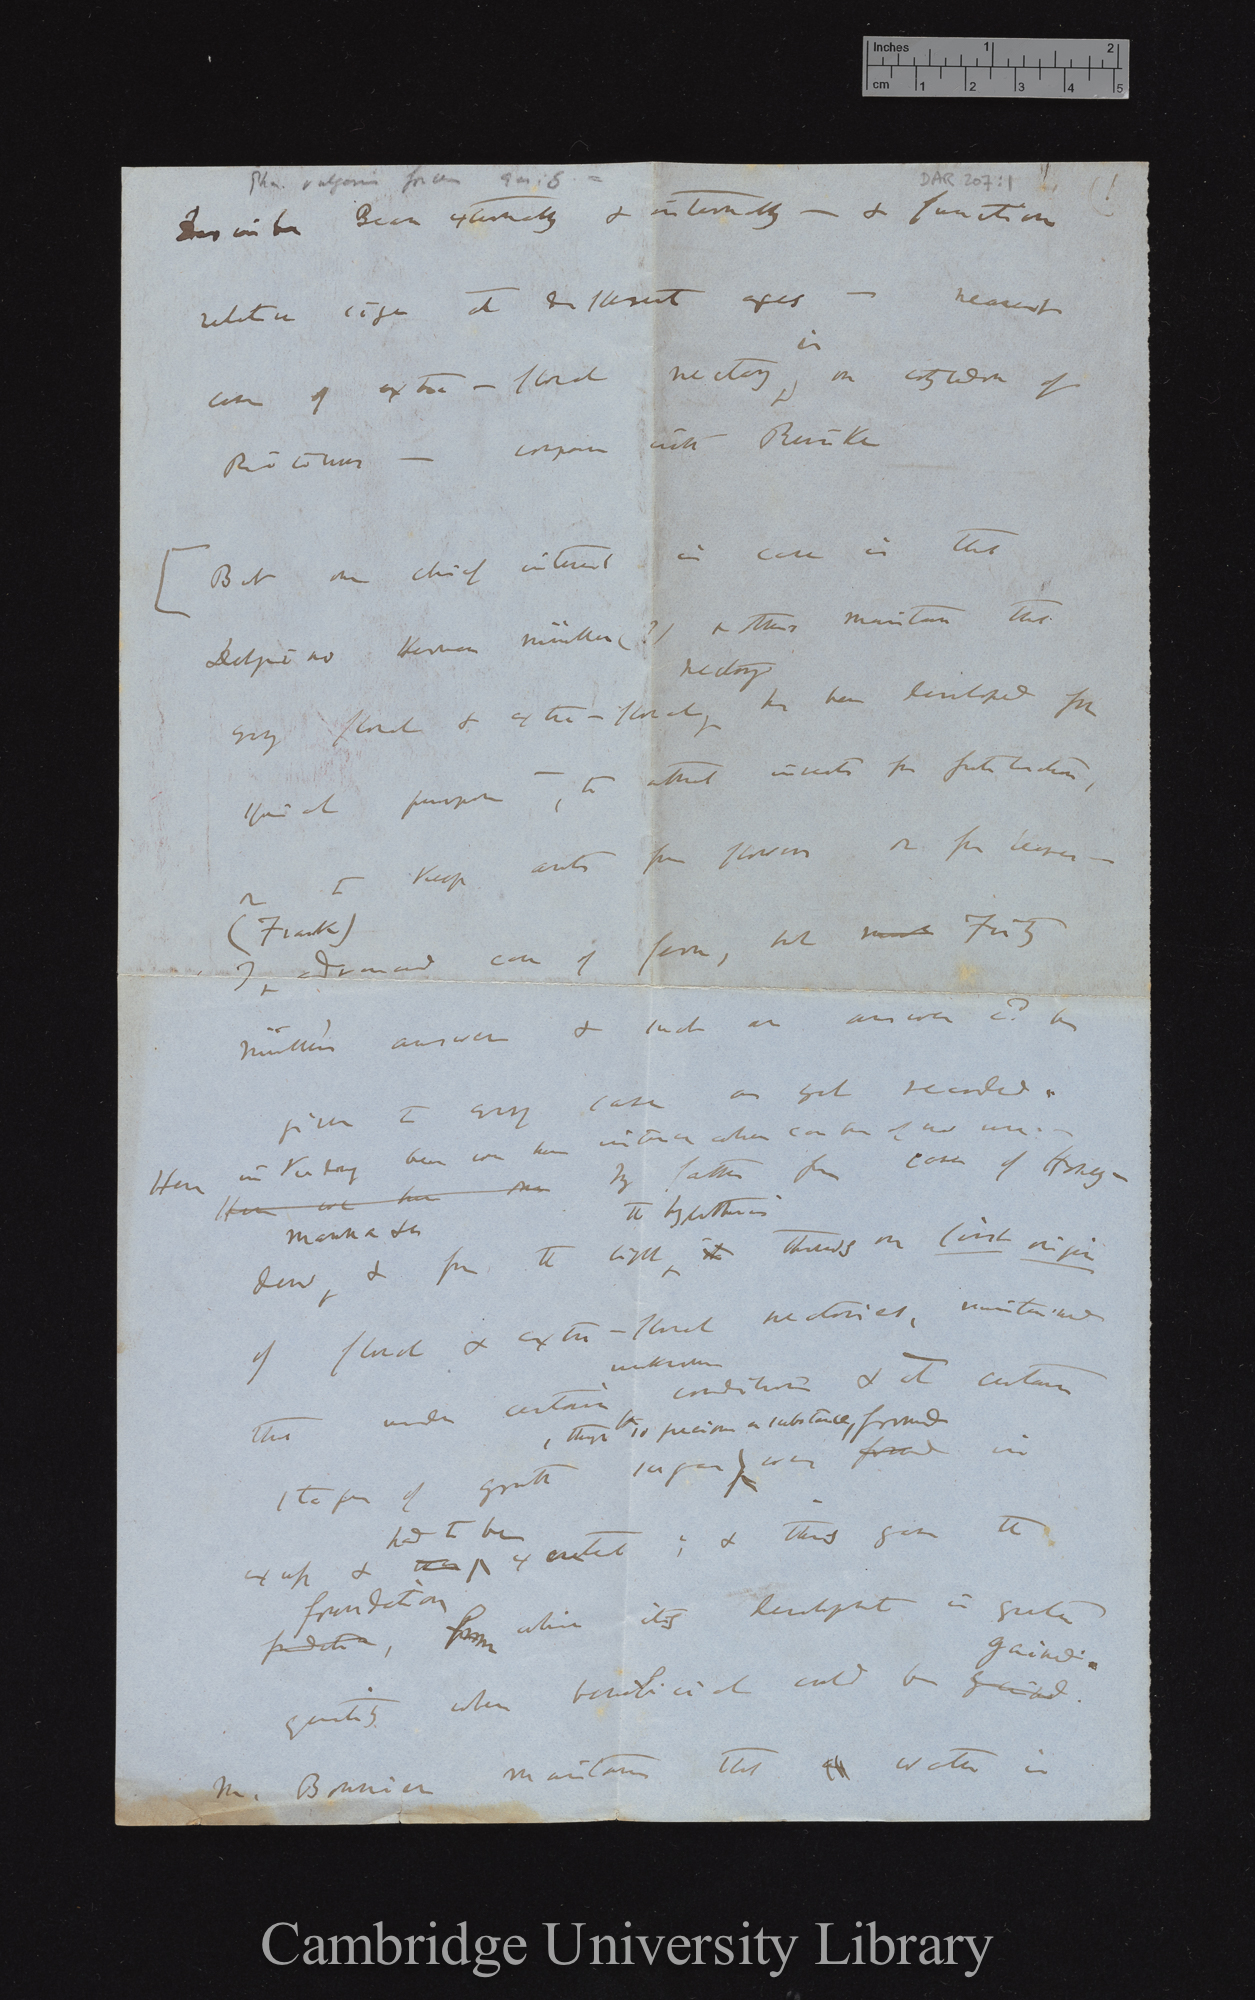 Inches 1 2
cm 1 2 3 4 5
Pha. vulgaris
DAR 207:1
Describe Bean externally & internally — & function
relative size at different ages — nearest
case of extra-floral nectary is on cotyledon of
Ricinus — compare with Reinke
[But our chief interest in case is that
Delpino Herman Müller (?) & others maintain that
nectary
every floral & extra-floral, has been developed for
special purpose —, to attract insects for fertilisation,
or to keep ants from flowers or from leaves —
(Frank)
? advanced case of fern, but Fritz
Müller's answer & such an answer cd be
given to every case as yet recorded.
Here in Kidney bean we have instance when can be of no use. —
Here we have one by latter from cases of Honey-
manna &c the hypothesis
dew, & from the light, it throws on first origin
of floral & extra-floral nectaries, maintained
unknown
that under certain conditions & at certain
, though so precious a substance, formed
stages of growth sugar was formed in
had to be
excess & excreted ; & this gave the
foundation
foundation, from when its development in greater
gained.
quantity when beneficial could be gained.
M. Bonnier maintains that water is
Cambridge University Library